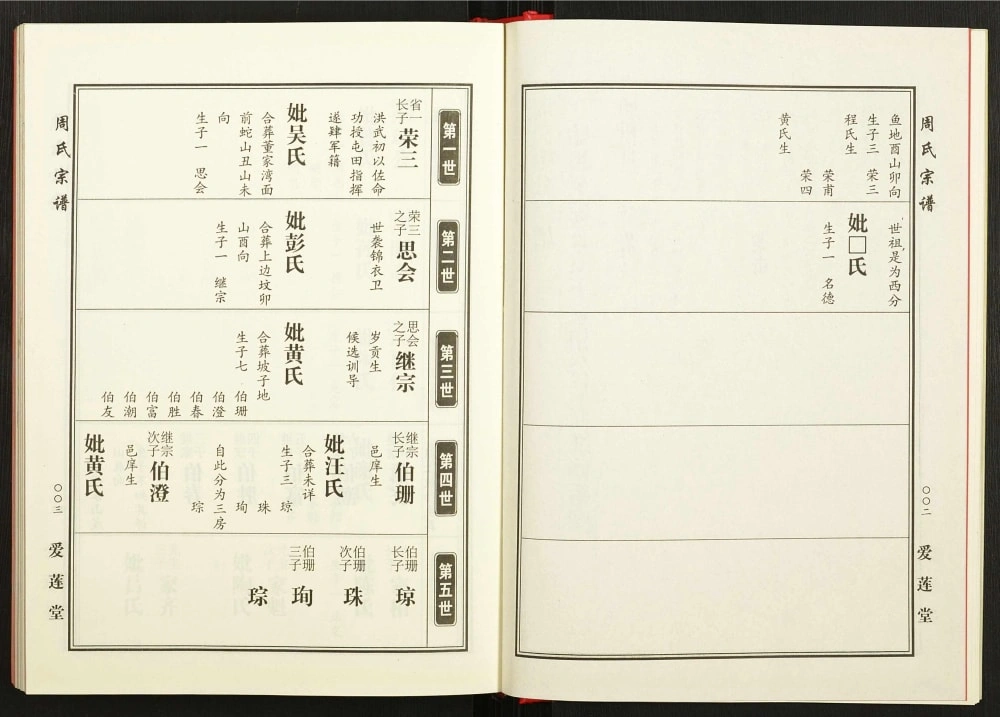 周氏宗谱
〇〇二
爱莲堂
鱼地酉山卯向
生子三 荣三
程氏生
荣甫
荣四
黄氏生
世祖是为西分
妣□氏
生子一 名德
第一世
省一长子 荣三
洪武初以佐命
功授屯田指挥
遂肄军籍
妣吴氏
合葬董家湾面
前蛇山丑山未
向
生子一 思会
第二世
荣三之子 思会
世袭锦衣卫
妣彭氏
合葬上边坟卯
山酉向
生子一 继宗
第三世
思会之子 继宗
岁贡生
候选训导
妣黄氏
合葬坡子地
生子七 伯珊
伯澄
伯春
伯胜
伯富
伯潮
伯友
第四世
继宗长子 伯珊
邑庠生
妣汪氏
合葬未详
生子三 琼
珠
珣
自此分为三房
琮
继宗次子 伯澄
邑庠生
妣黄氏
第五世
伯珊长子 琼
伯珊次子 珠
伯珊三子 珣
琮
周氏宗谱
〇〇三
爱莲堂